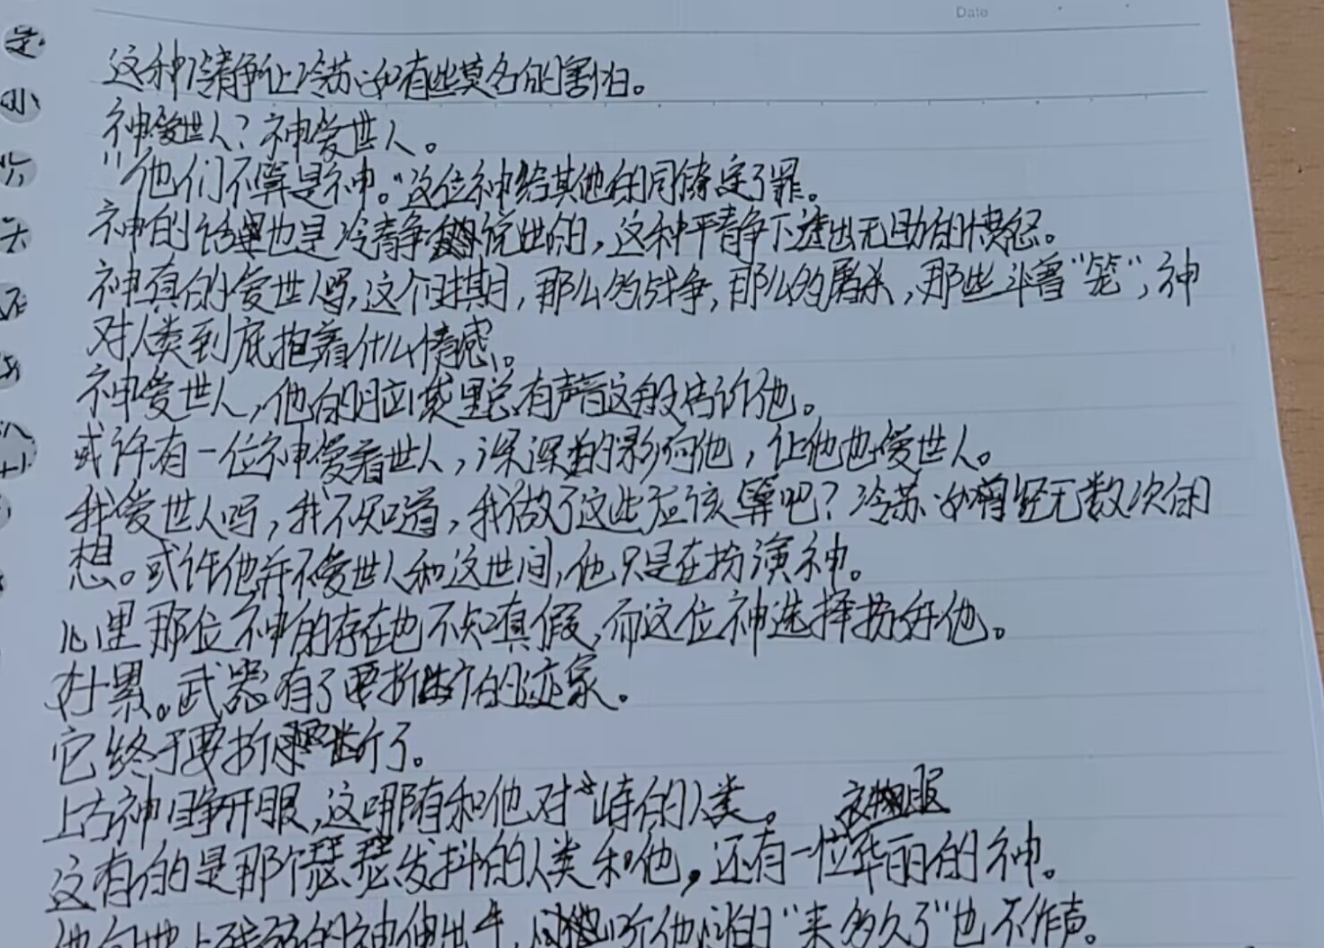 Date
这种冷静让冷苏沁有些莫名的害怕。
神爱世人？神爱世人。
"他们不算是神。"这位神给其他的同僚定了罪。
神的话里也是冷静说出的，这种平静下透出无助的愤怒。
神真的爱世人吗，这个时期，那么多战争，那么多屠杀，那些斗兽"笼"，神
对人类到底抱着什么情感。
神爱世人，他的脑袋里总有声音这般告诉他。
或许有一位神爱着世人，深深的影响他，让他也爱世人。
我爱世人吗，我不知道，我做了这些应该算吧？冷苏沁曾经无数次的
想。或许他并不爱世人和这世间，他只是在扮演神。
心里那位神的存在也不知真假，而这位神选择扮好他。
好累。武器有了要折断的迹象。
它终于要折断了。
上古神睁开眼，这哪有和他对峙的人类。
这有的是那个瑟瑟发抖的人类和他，还有一位华丽的神。
他向地上的神伸出手，听他问"来多久了"也不作声。